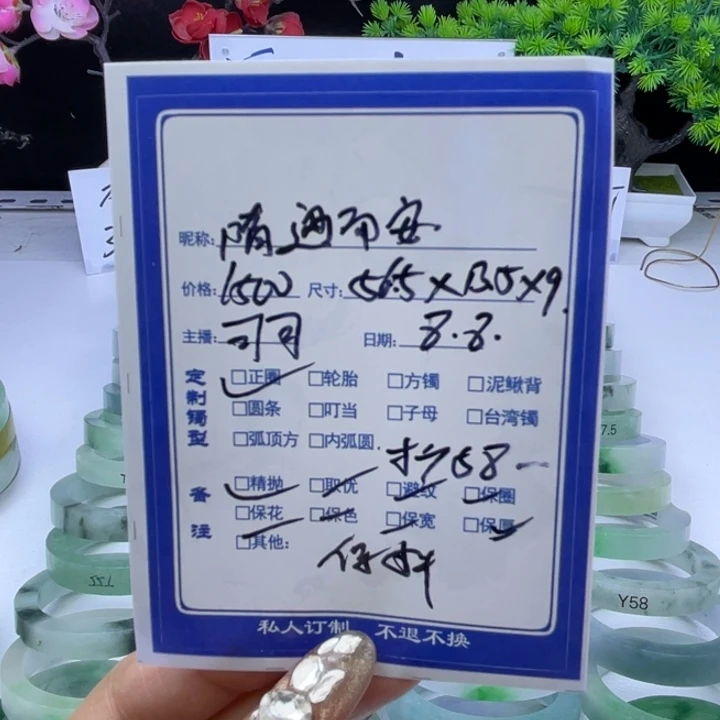 昵称: 隋遇而安
价格: 1500 尺寸: 56.5×13.5×9
主播: 司司 日期: 8.8.
定制镯型
□正圈 □轮胎 □方镯 □泥鳅背
□圆条 □叮当 □子母 □台湾镯
□弧顶方 □内弧圆.
58
备注
□精抛 □取优 □避纹 □保圈
□保花 □保色 □保宽 □保厚
□其他:
私人订制 不退不换
7.5
Y58